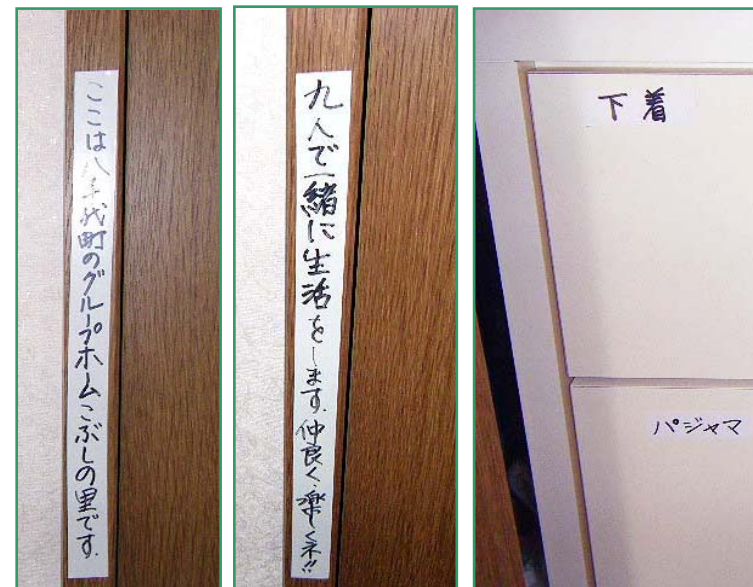 ここは八千代町のグループホームこぶしの里です.
九人で一緒に生活をします.仲良く.楽しくネ!!
下着
パジャマ